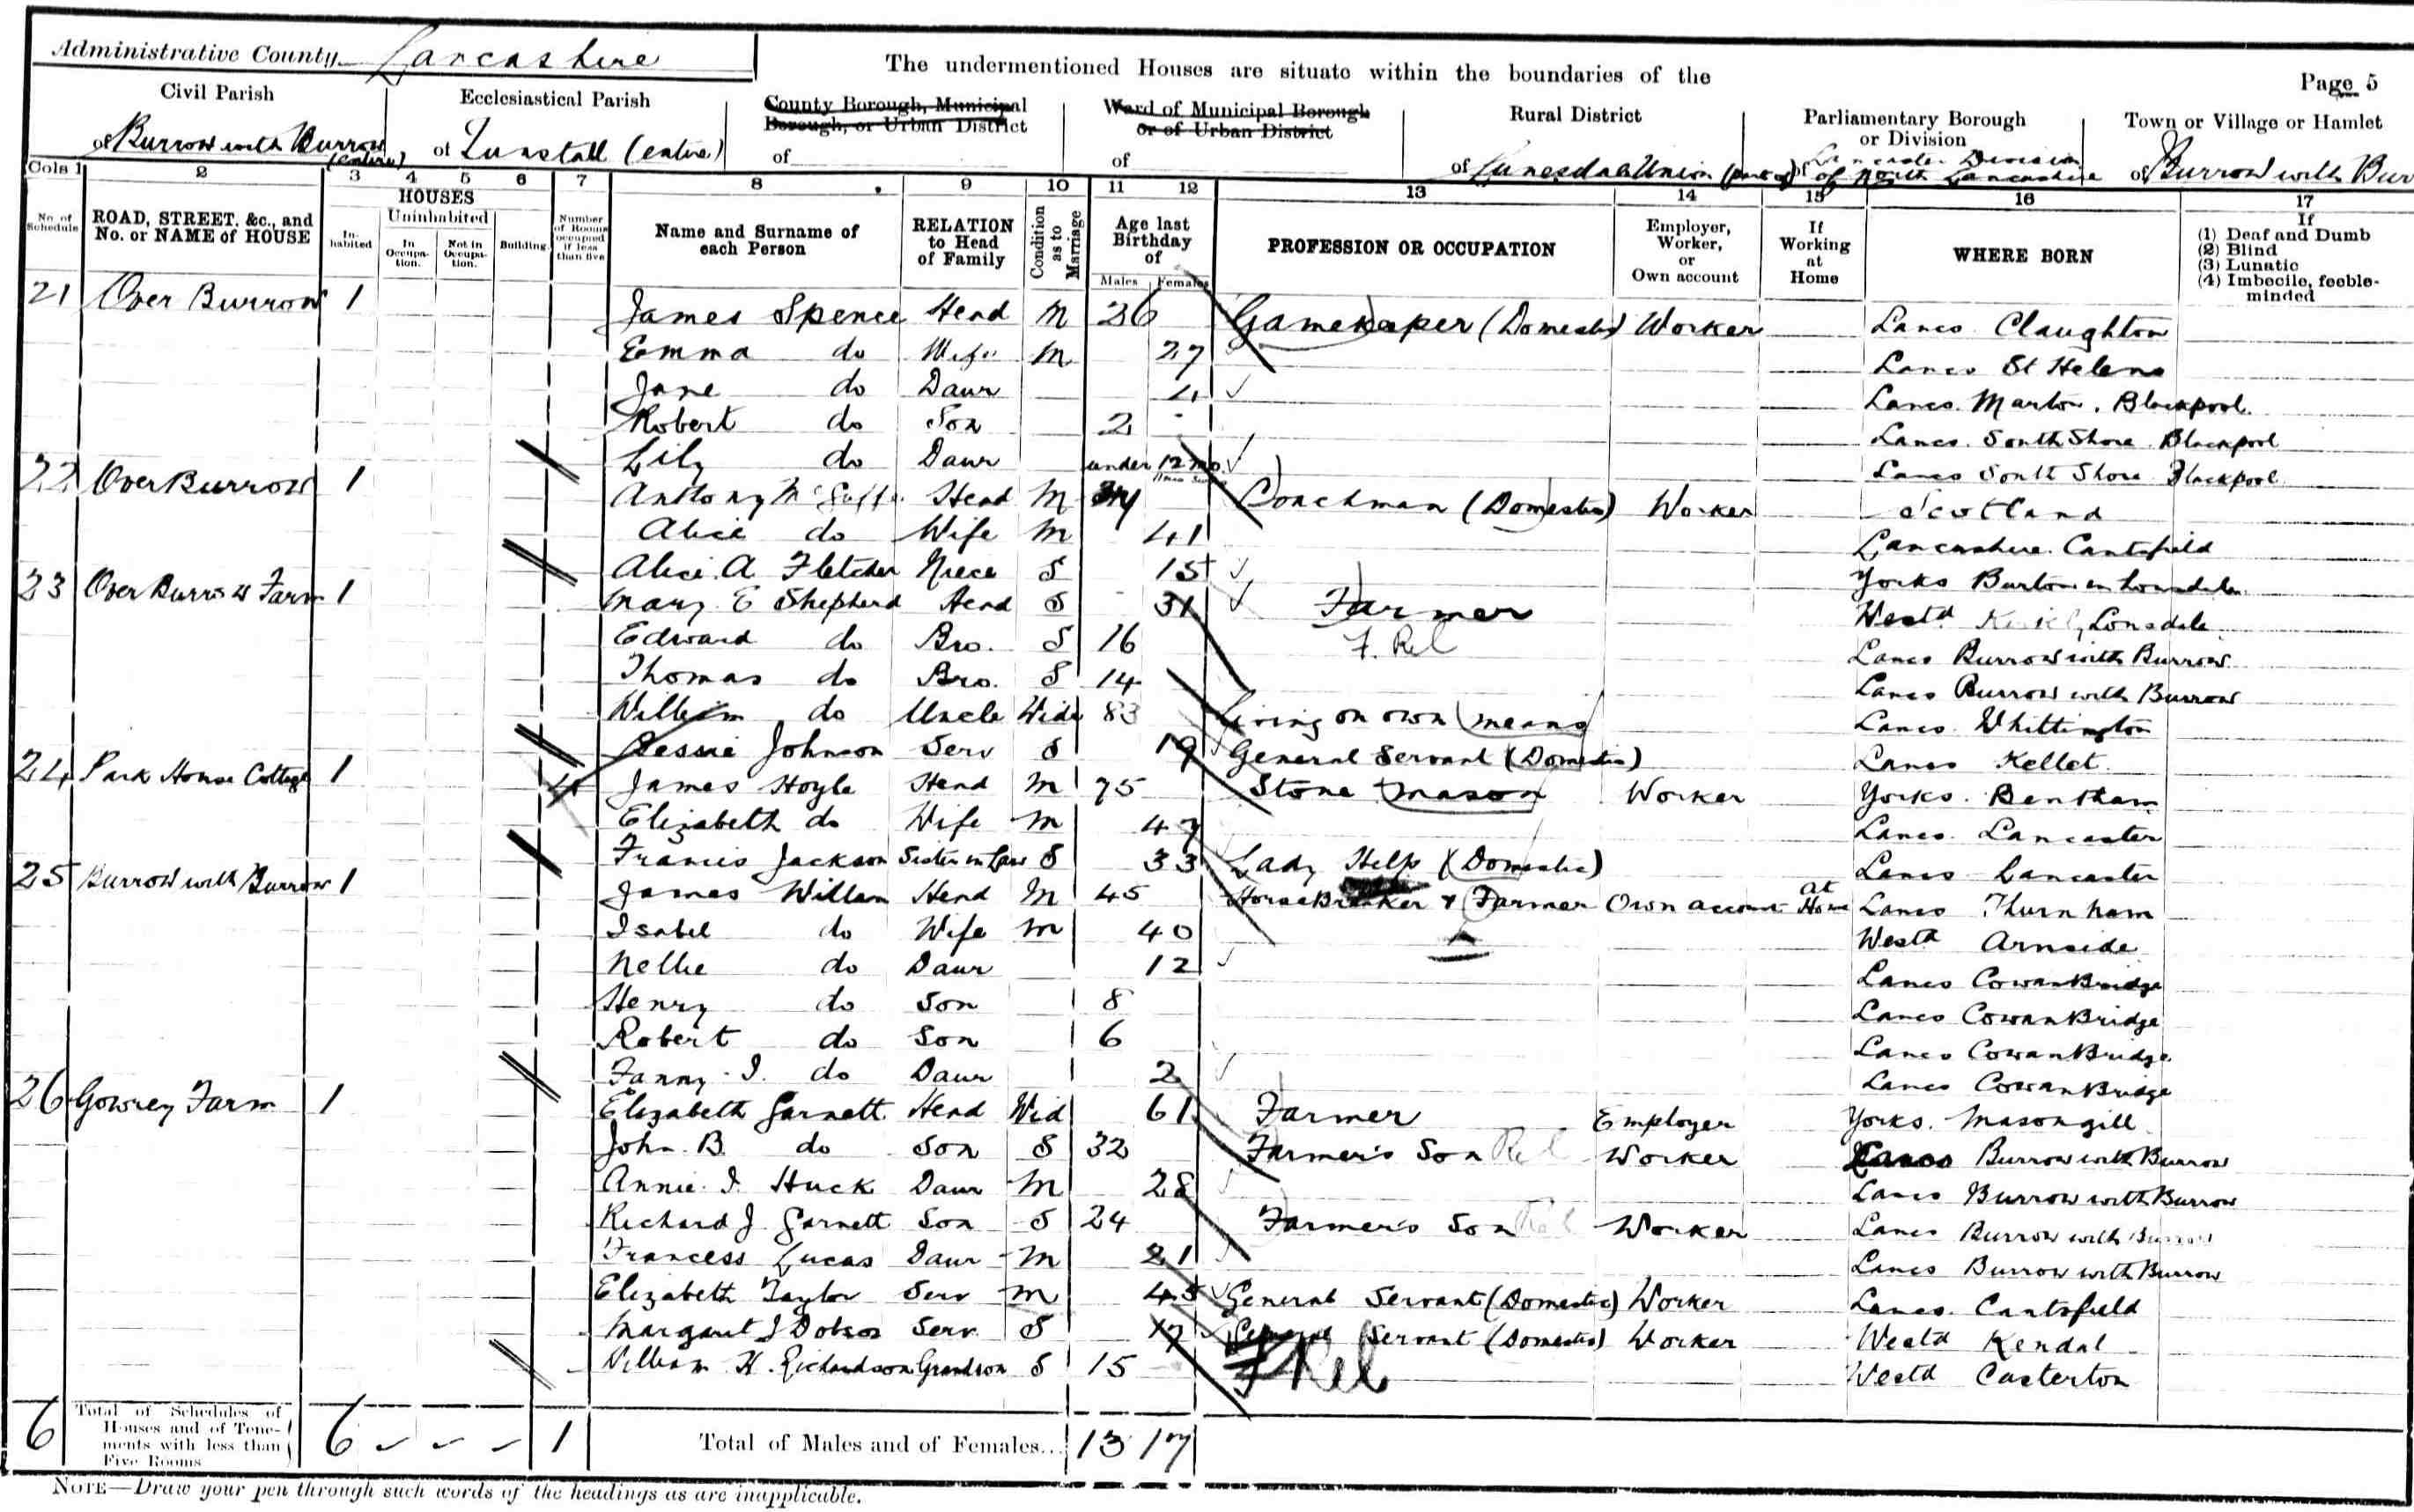 Administrative County Lancashire
The undermentioned Houses are situate within the boundaries of the
Page 5
Civil Parish
Ecclesiastical Parish
County Borough, Municipal Borough, or Urban District
Ward of Municipal Borough or of Urban District
Rural District
Parliamentary Borough or Division
Town or Village or Hamlet
of Burrow with Burrow (entire)
of Tunstall (entire)
of
of
of Lunesdale Union (part of)
of Lancaster Division of North Lancashire
of Burrow with Bur
Cols 1 2 3 4 5 6 7 8 9 10 11 12 13 14 15 16 17
No. of Schedule
ROAD, STREET, &c., and No. or NAME of HOUSE
HOUSES
Inhabited
Uninhabited
In Occupation.
Not in Occupation.
Building
Number of Rooms occupied if less than five
Name and Surname of each Person
RELATION to Head of Family
Condition as to Marriage
Age last Birthday of
Males Females
PROFESSION OR OCCUPATION
Employer, Worker, or Own account
If Working at Home
WHERE BORN
If
(1) Deaf and Dumb
(2) Blind
(3) Lunatic
(4) Imbecile, feeble-minded
21 Over Burrow 1 James Spence Head M 26 Gamekeeper (Domestic) Worker Lancs Claughton
Emma do Wife M 27 Lancs St Helens
Jane do Daur 4 Lancs. Marton. Blackpool.
Robert do Son 2 Lancs. South Shore Blackpool
Lily do Daur under 12 mo. Lancs South Shore Blackpool
22 Over Burrow 1 Anthony Head M Coachman (Domestic) Worker Scotland
Alice do Wife M 41 Lancashire. Cantsfield
Alice. A Fletcher Niece S 15 Yorks Burton in Lonsdale
23 Over Burrow Farm 1 Mary E Shepherd Head S 31 Farmer Westd Kirkby Lonsdale
Edward do Bro. S 16 F. Rel Lancs Burrow with Burrow
Thomas do Bro. S 14 Lancs Burrow with Burrow
William do Uncle Widr 83 Living on own means Lancs. Whittington
Bessie Johnson Serv S 19 General Servant (Domestic) Lancs Kellet
24 Park House Cottage 1 4 James Hoyle Head M 75 Stone Mason Worker Yorks. Bentham
Elizabeth do Wife M 47 Lancs. Lancaster
Francis Jackson Sister in Law S 33 Lady Help (Domestic) Lancs Lancaster
25 Burrow with Burrow 1 James Willan Head M 45 Horse Breaker & Farmer Own account at Home Lancs Thurnham
Isabel do Wife M 40 Westd Arnside
Nellie do Daur 12 Lancs Cowan Bridge
Henry do Son 8 Lancs Cowan Bridge
Robert do Son 6 Lancs Cowan Bridge
Fanny I. do Daur 2 Lancs Cowan Bridge
26 Gowrey Farm 1 Elizabeth Garnett Head Wid 61 Farmer Employer Yorks. Masongill
John. B. do Son S 32 Farmer's Son Rel Worker Lancs Burrow with Burrow
Annie. I. Huck Daur M 28 Lancs Burrow with Burrow
Richard J. Garnett Son S 24 Farmer's Son Rel Worker Lancs Burrow with Burrow
Francess Lucas Daur M 21 Lancs Burrow with Burrow
Elizabeth Taylor Serv M 45 General Servant (Domestic) Worker Lancs. Cantsfield
Margaret J Dobson Serv. S 17 General Servant (Domestic) Worker Westd Kendal
William H. Richardson Grandson S 15 F Rel Westd Casterton
6 Total of Schedules of Houses and of Tenements with less than Five Rooms 6 1 Total of Males and of Females... 13 17
NOTE—Draw your pen through such words of the headings as are inapplicable.